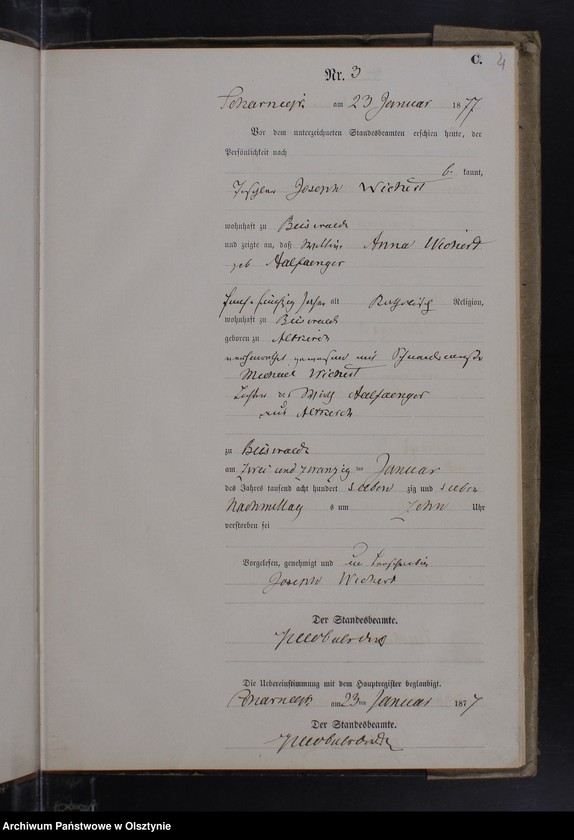 C. 4
Nr. 3
am 23 Januar 1877
Vor dem unterzeichneten Standesbeamten erschien heute, der
Persönlichkeit nach
be kannt,
Joseph Wichert
wohnhaft zu Beiswalde
und zeigte an, daß Anna Wichert
geb Aalfaenger
fünf u fünfzig Jahre alt Katholisch Religion,
wohnhaft zu Beiswalde
geboren zu Altkirch
mit
Michael Wichert
Tochter der Aalfaenger
aus Altkirch
zu Beiswalde
am zwei und zwanzig ten Januar
des Jahres tausend acht hundert sieben zig und sieben
Nachmittag s um zehn Uhr
verstorben sei
Vorgelesen, genehmigt und unterschrieben
Joseph Wichert
Der Standesbeamte.
Die Uebereinstimmung mit dem Hauptregister beglaubigt.
am 23 ten Januar 1877
Der Standesbeamte.
Archiwum Państwowe w Olsztynie